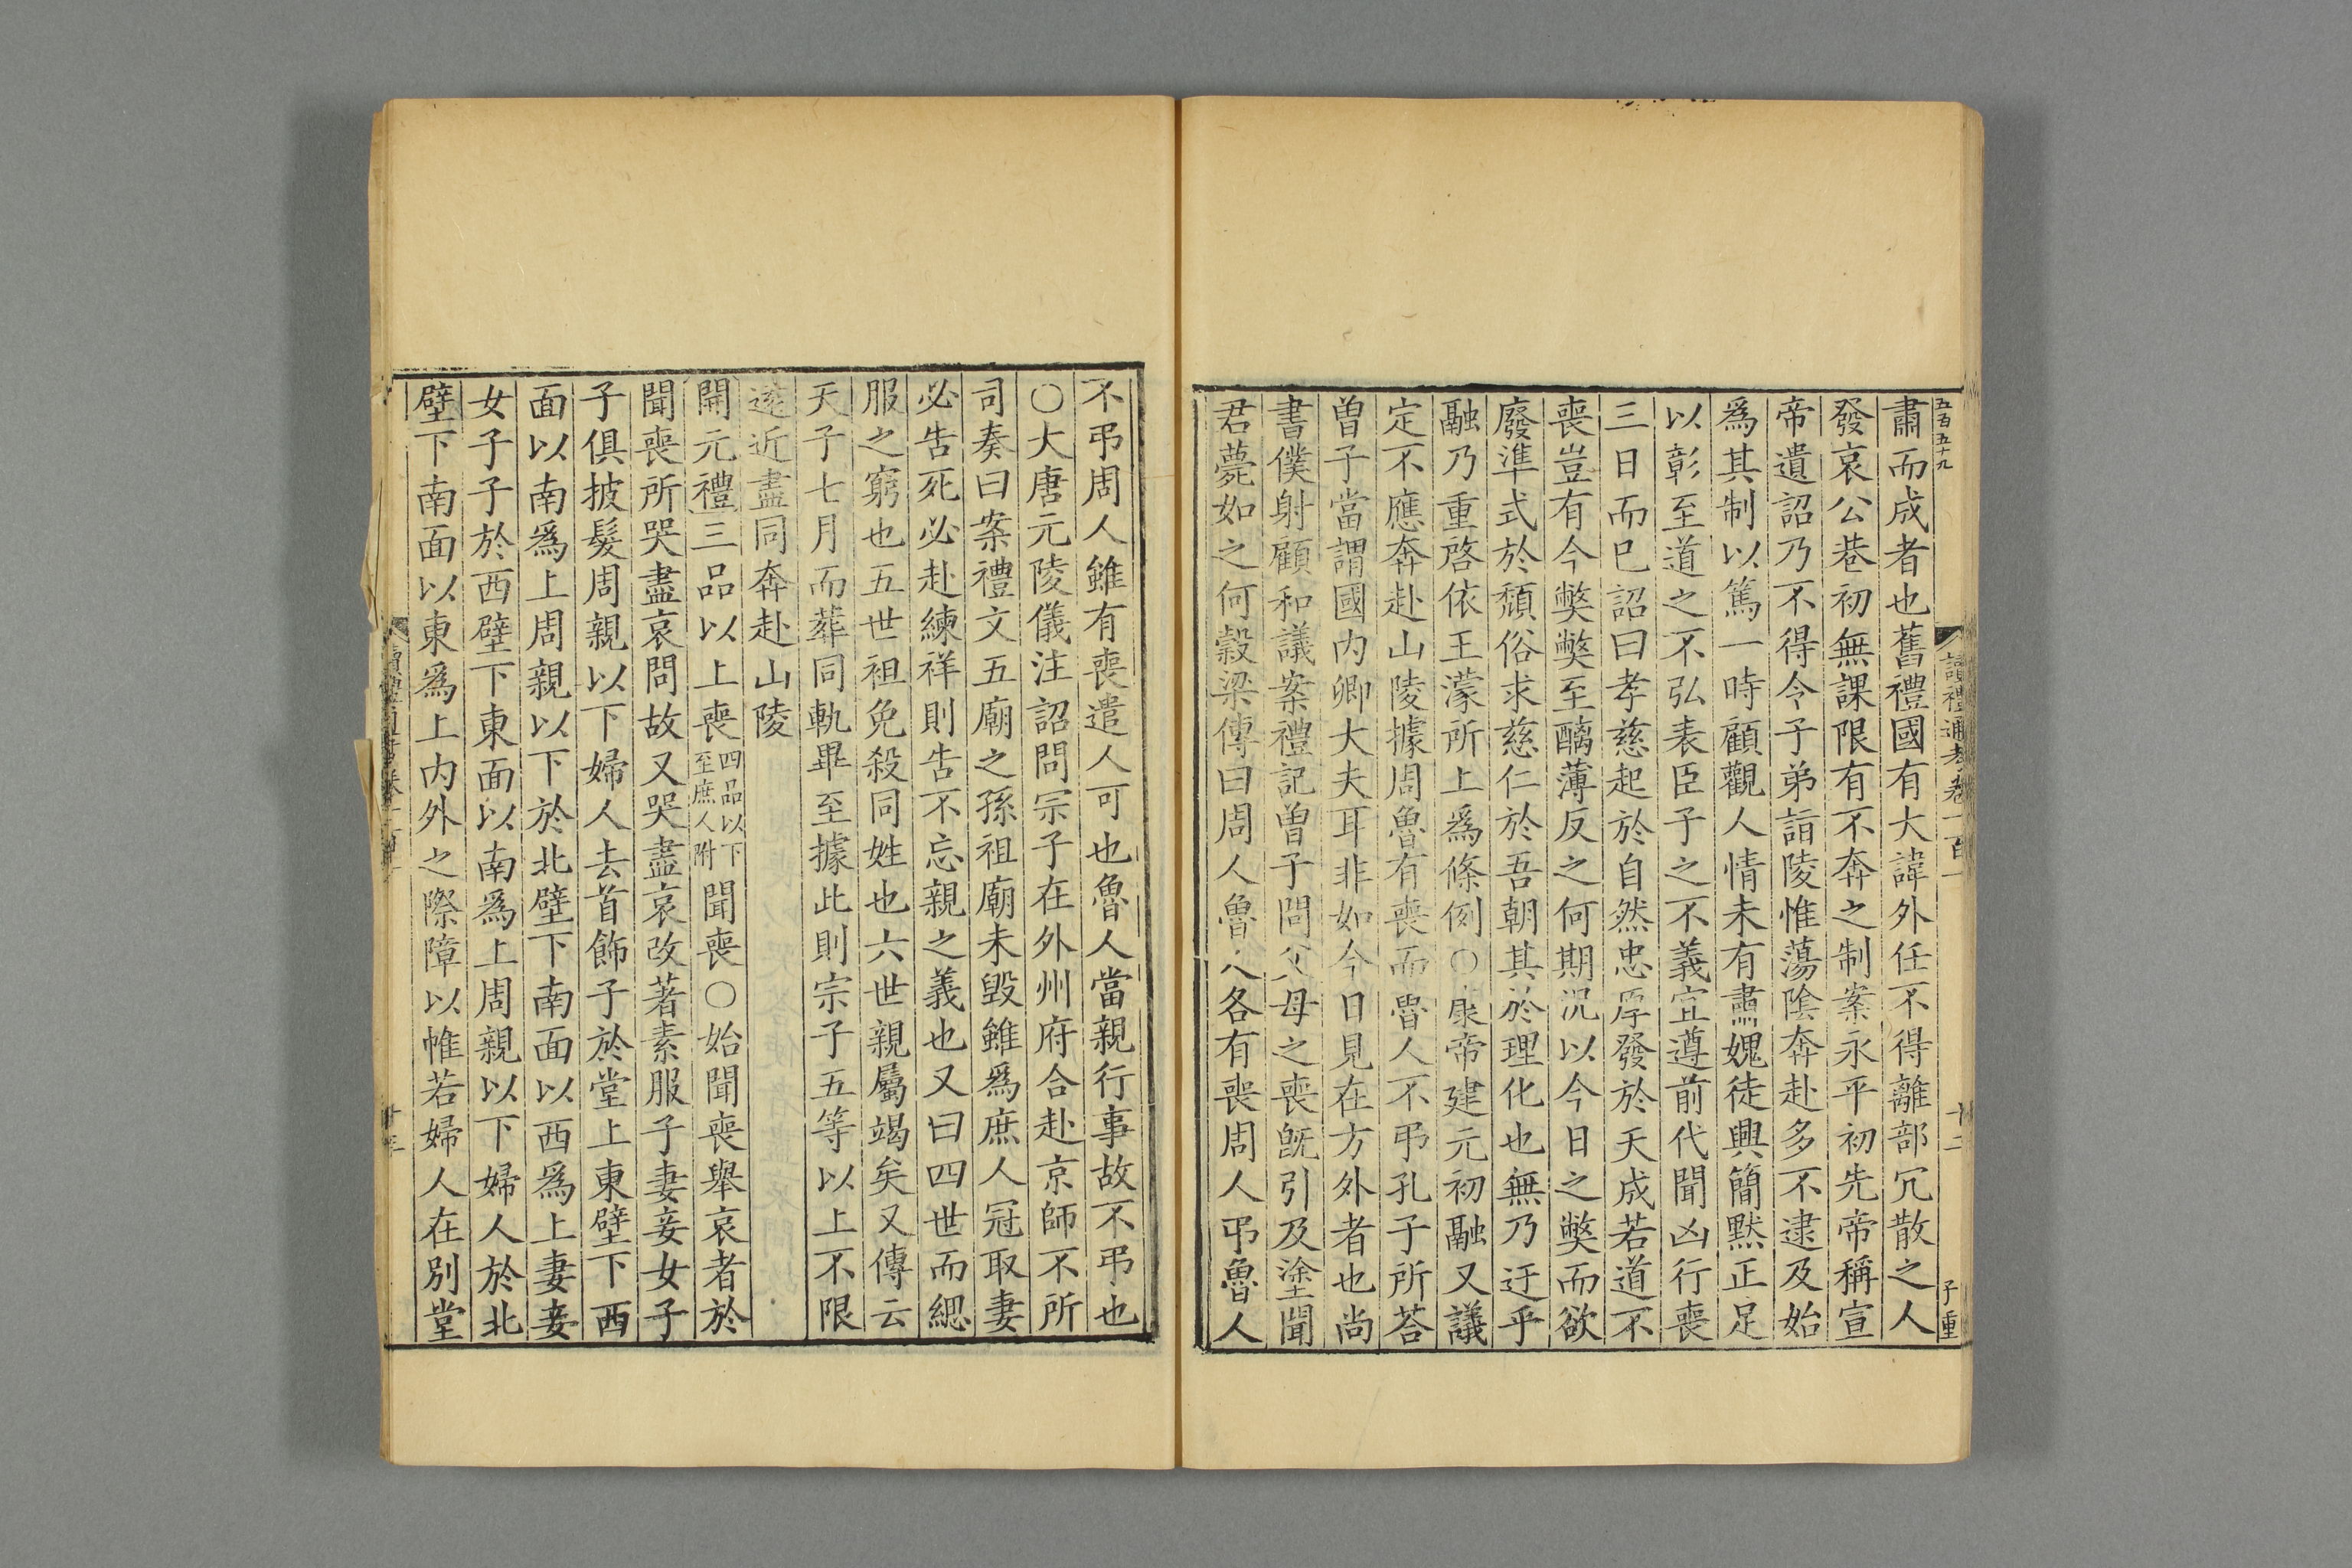 五百五十九
讀禮通考卷一百一
十二
子重
肅而成者也舊禮國有大諱外任不得離部冗散之人
發哀公巷初無課限有不奔之制案永平初先帝稱宣
帝遺詔乃不得令子弟詣陵惟蕩陰奔赴多不逮及始
爲其制以篤一時顧觀人情未有肅媿徒興簡黙正足
以彰至道之不弘表臣子之不義宜遵前代聞凶行喪
三日而已詔曰孝慈起於自然忠厚發於天成若道不
喪豈有今獘獘至醨薄反之何期況以今日之獘而欲
廢準式於頽俗求慈仁於吾朝其於理化也無乃迂乎
融乃重啓依王濛所上爲條例〇康帝建元初融又議
定不應奔赴山陵據周魯有喪而魯人不弔孔子所荅
曾子當謂國内卿大夫耳非如今日見在方外者也尚
書僕射顧和議案禮記曾子問父母之喪旣引及塗聞
君薨如之何穀梁傳曰周人魯人各有喪周人弔魯人
不弔周人雖有喪遣人可也魯人當親行事故不弔也
〇大唐元陵儀注詔問宗子在外州府合赴京師不所
司奏曰案禮文五廟之孫祖廟未毀雖爲庶人冠取妻
必告死必赴練祥則告不忘親之義也又曰四世而緦
服之窮也五世祖免殺同姓也六世親屬竭矣又傳云
天子七月而葬同軌畢至據此則宗子五等以上不限
逺近盡同奔赴山陵
開元禮三品以上喪四品以下至庶人附聞喪〇始聞喪舉哀者於
聞喪所哭盡哀問故又哭盡哀改著素服子妻妾女子
子俱披髮周親以下婦人去首飾子於堂上東壁下西
面以南爲上周親以下於北壁下南面以西爲上妻妾
女子子於西壁下東面以南爲上周親以下婦人於北
壁下南面以東爲上内外之際障以帷若婦人在別堂